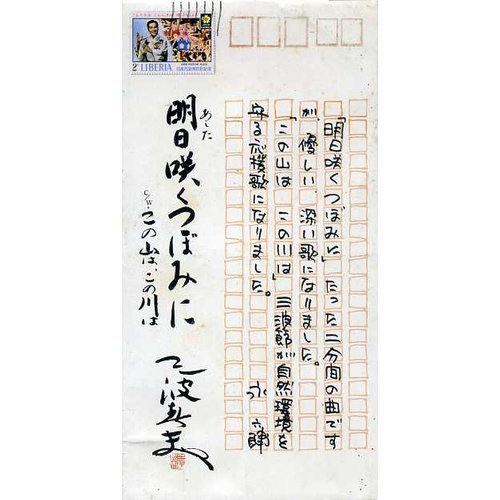 2c LIBERIA
「明日咲くつぼみに」たった二分間の曲です
が、優しい、深い歌になりました。
「この山は この川は」三波節が自然環境を
守る応援歌になりました。
永 六輔
あした
明日咲くつぼみに
C/W. この山は、この川は
三波春夫